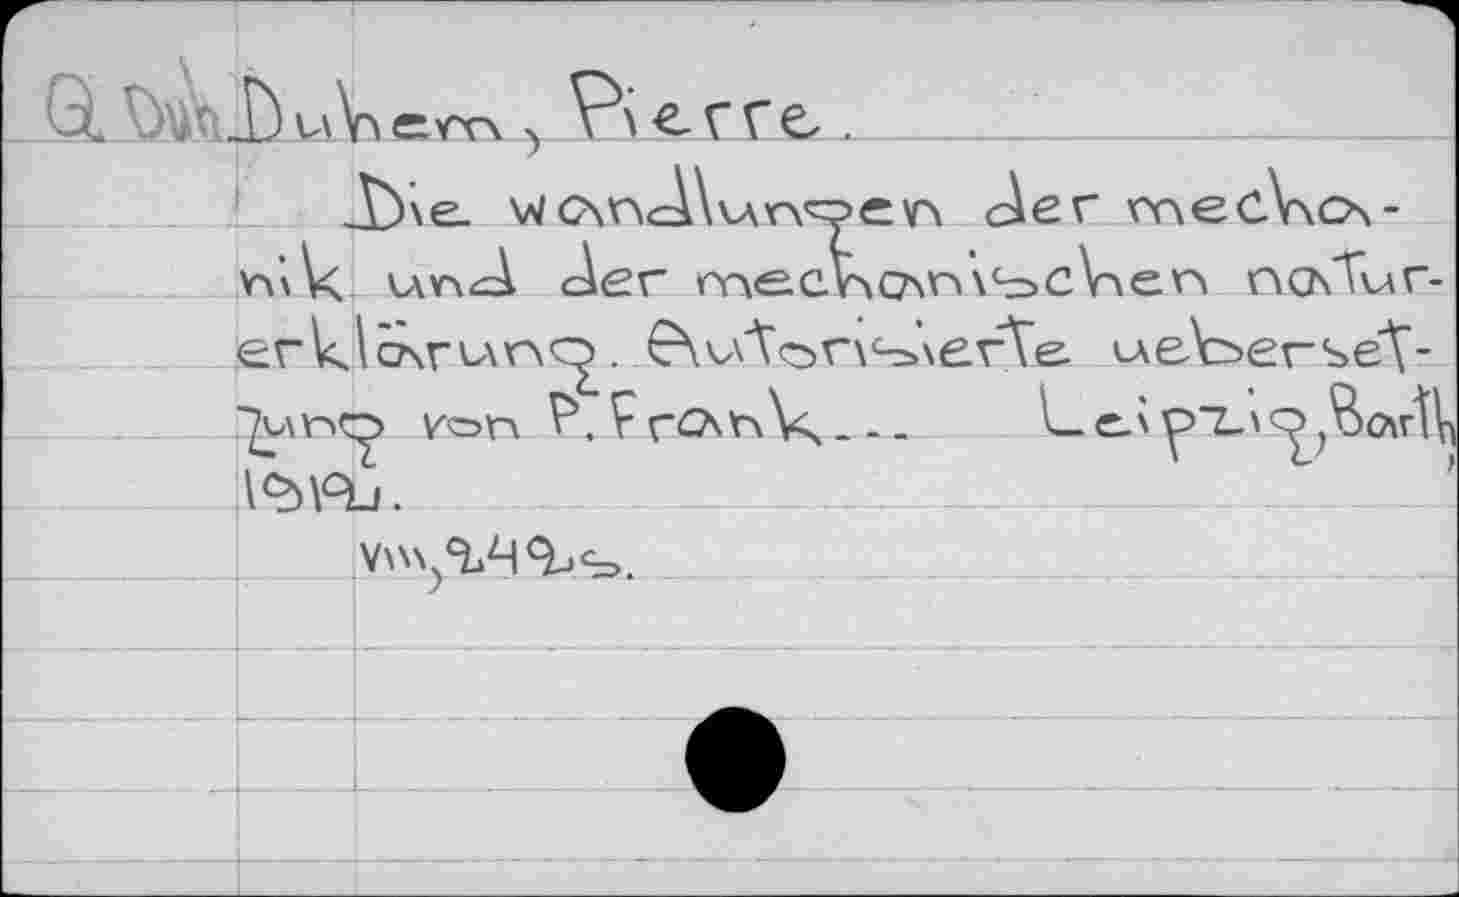 Duh Duhem, Pierre.
Die wandlungen der mecha-
nik und der mechanischen natur-
erklärung. Autorisierte ueberset-
zung von P. Frank... Leipzig, Barth,
1912.
viii, 242 s.